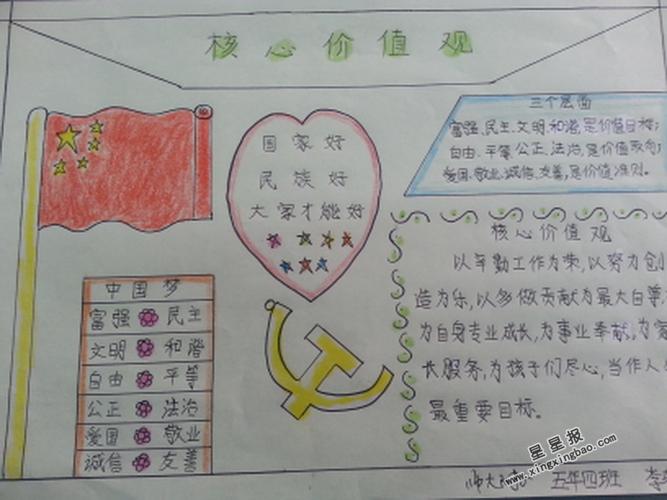 核心价值观
国家好
民族好
大家才能好
三个层面
富强、民主、文明、和谐,是价值目标;
自由、平等、公正、法治,是价值取向;
爱国、敬业、诚信、友善,是价值准则。
中国梦
富强 民主
文明 和谐
自由 平等
公正 法治
爱国 敬业
诚信 友善
核心价值观
以辛勤工作为荣,以努力创
造为乐,以多做贡献为最大自
为自身专业成长,为事业奉献,为家
长服务,为孩子们尽心,当作人
最重要目标。
师大 五年四班 李
星星报
www.xingxingbao.com